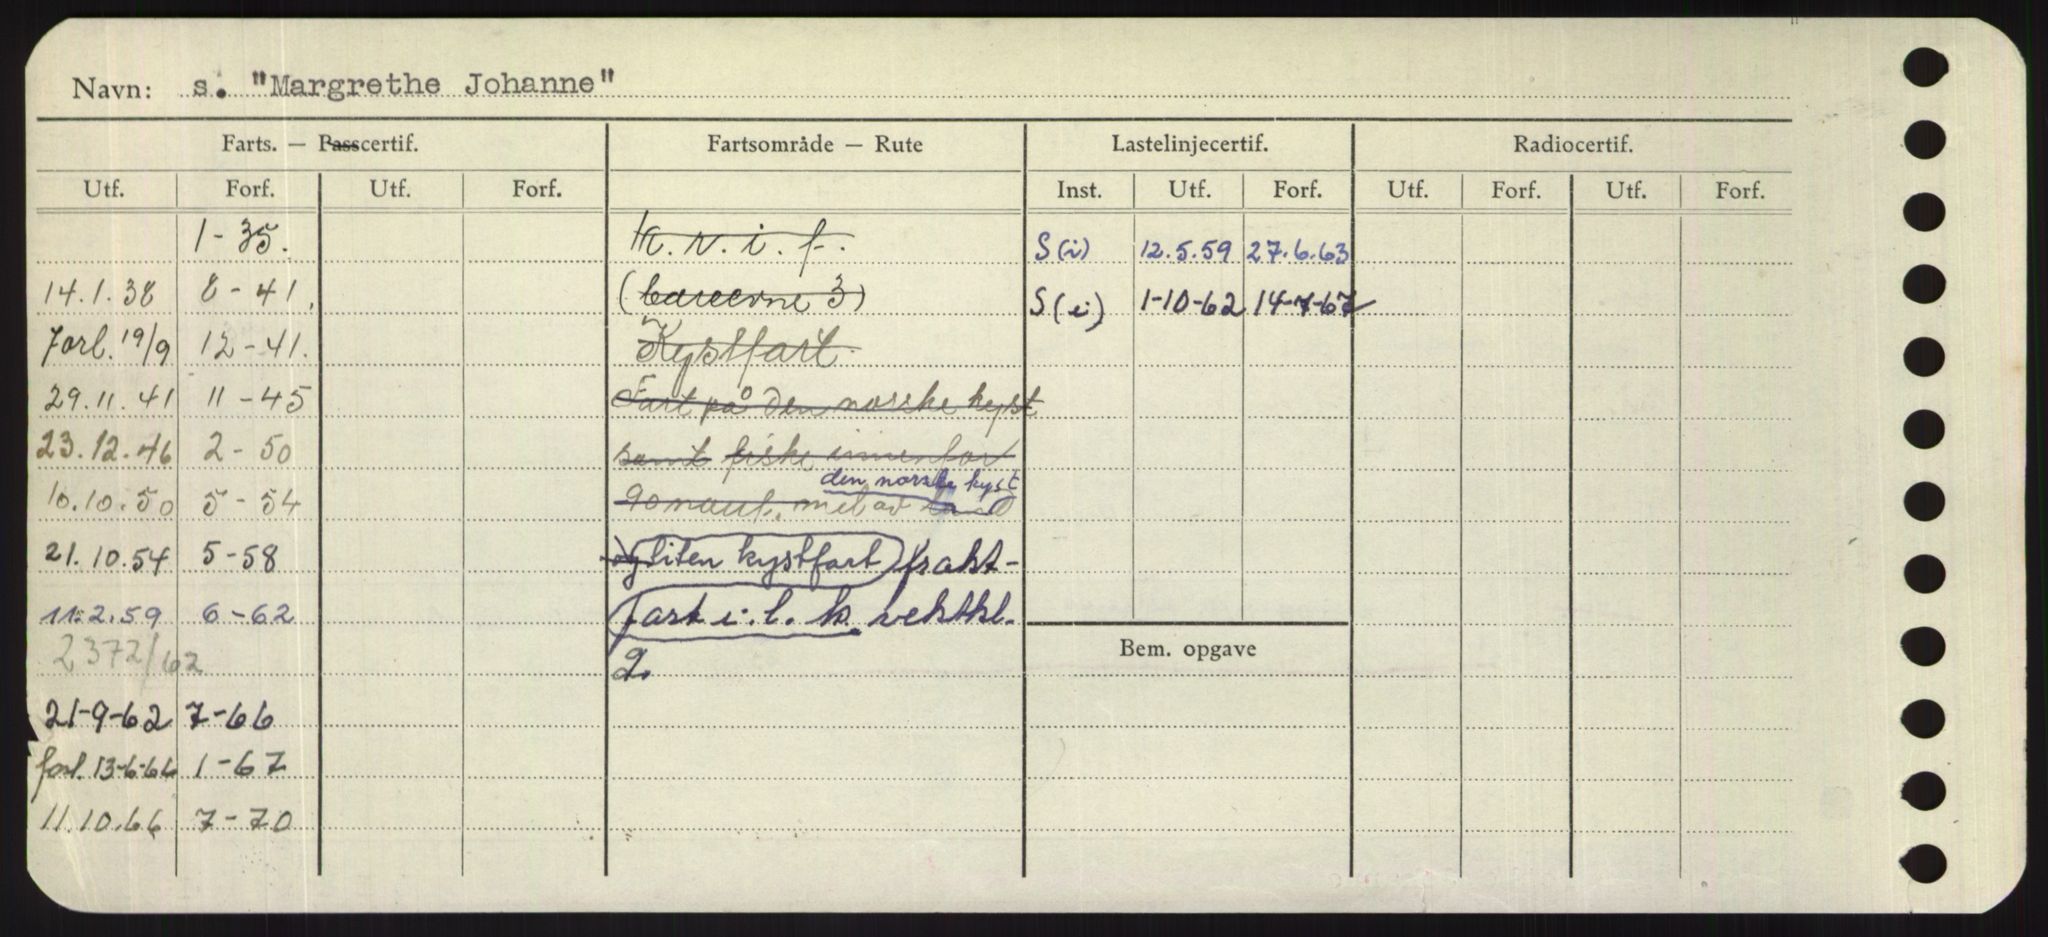 Navn: s. "Margrethe Johanne"
Farts. — Passcertif. Fartsområde — Rute Lastelinjecertif. Radiocertif.
Utf. Forf. Utf. Forf. Inst. Utf. Forf. Utf. Forf. Utf. Forf.
1-35. k.v.i.f. S(i) 12.5.59 27.6.63
14.1.38 8-41. 3) S(i) 1-10-62 14-7-67
Forl. 19/9 12-41. Kystfart.
29.11.41 11-45 Fart på den norske kyst
23.12.46 2-50 samt fiske innenfor
den norske kyst
10.10.50 5-54 90 naut. mil av
21.10.54 5-58 og liten kystfart frakt-
11.2.59 6-62 fart i. l. k. vekthl.
2372/62 2.
Bem. opgave
21-9-62 7-66
forl. 13-6-66 1-67
11.10.66 7-70